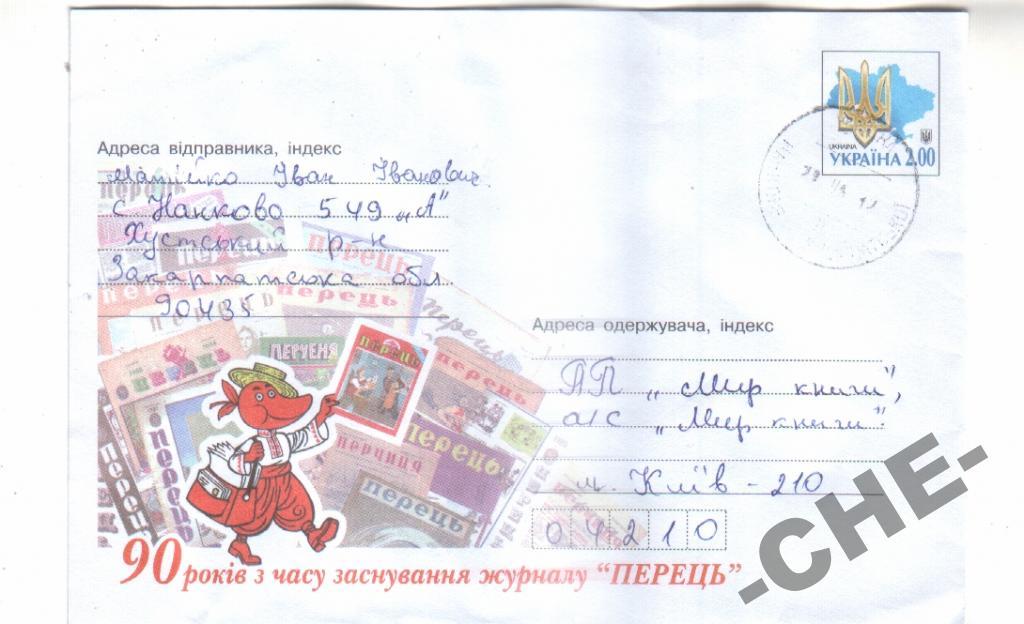 UKRAINA
УКРАЇНА 2.00
Адреса відправника, індекс
Іван Іванович
с Нанково 549 „А"
Хустський р-н
Закарпатська обл
90435
Перець
перець
перець
ПЕРЧЕНЯ
ПЕРЕЦЬ
перець
перець
перчиця
перець
перець
Адреса одержувача, індекс
ПП „Мир книги",
а/с „Мир книги".
м. Київ - 210
04210
90 років з часу заснування журналу “ПЕРЕЦЬ”
-CHE-